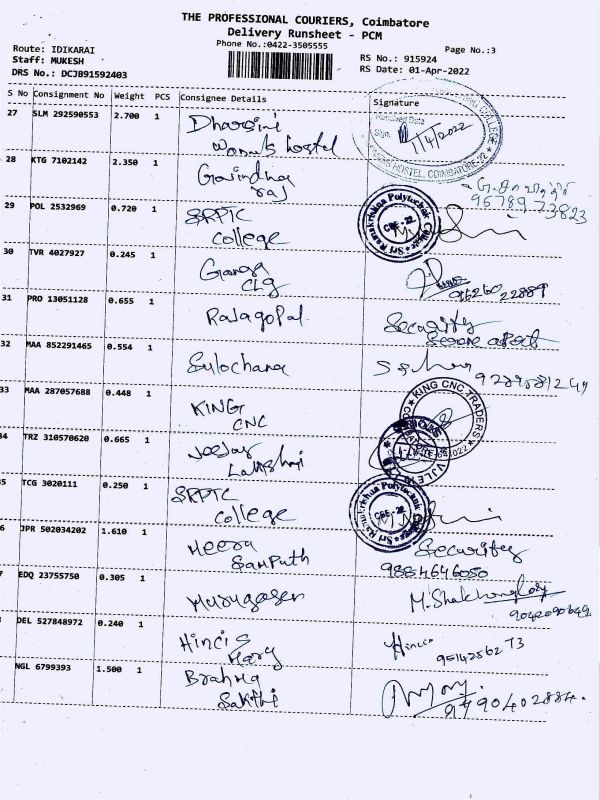 THE PROFESSIONAL COURIERS, Coimbatore
Delivery Runsheet - PCM
Phone No.:0422-3505555
Page No.:3
Route: IDIKARAI
Staff: MUKESH
DRS No.: DCJB91592403
RS No.: 915924
RS Date: 01-Apr-2022
S No Consignment No Weight PCS Consignee Details Signature
27 SLM 292590553 2.700 1 Dharsini
Womens hostel
1/4/2022
HOSTEL, COIMBATORE
28 KTG 7102142 2.350 1 Govindha
raj
96789 73823
29 POL 2532969 0.720 1 SRPTC
College
Sri Ramakrishna Polytechnic College
CBE-22
30 TVR 4027927 0.245 1 Ganga
Clg
31 PRO 13051128 0.655 1 Rajagopal Security
32 MAA 852291465 0.554 1 Sulochana
33 MAA 287057688 0.448 1 KING
CNC
KING CNC TRADERS
34 TRZ 310570620 0.665 1
Lakshmi
35 TCG 3020111 0.250 1 SRPTC
College
Sri Ramakrishna Polytechnic College
CBE-22
6 JPR 502034202 1.610 1 Meera
Sampath
Security
9884646050
7 EDQ 23755750 0.305 1 Murugasen
DEL 527848972 0.240 1 Hincis
Mary
Hincis
9514256273
NGL 6799393 1.500 1 Brahma
Sakthi
9790402884